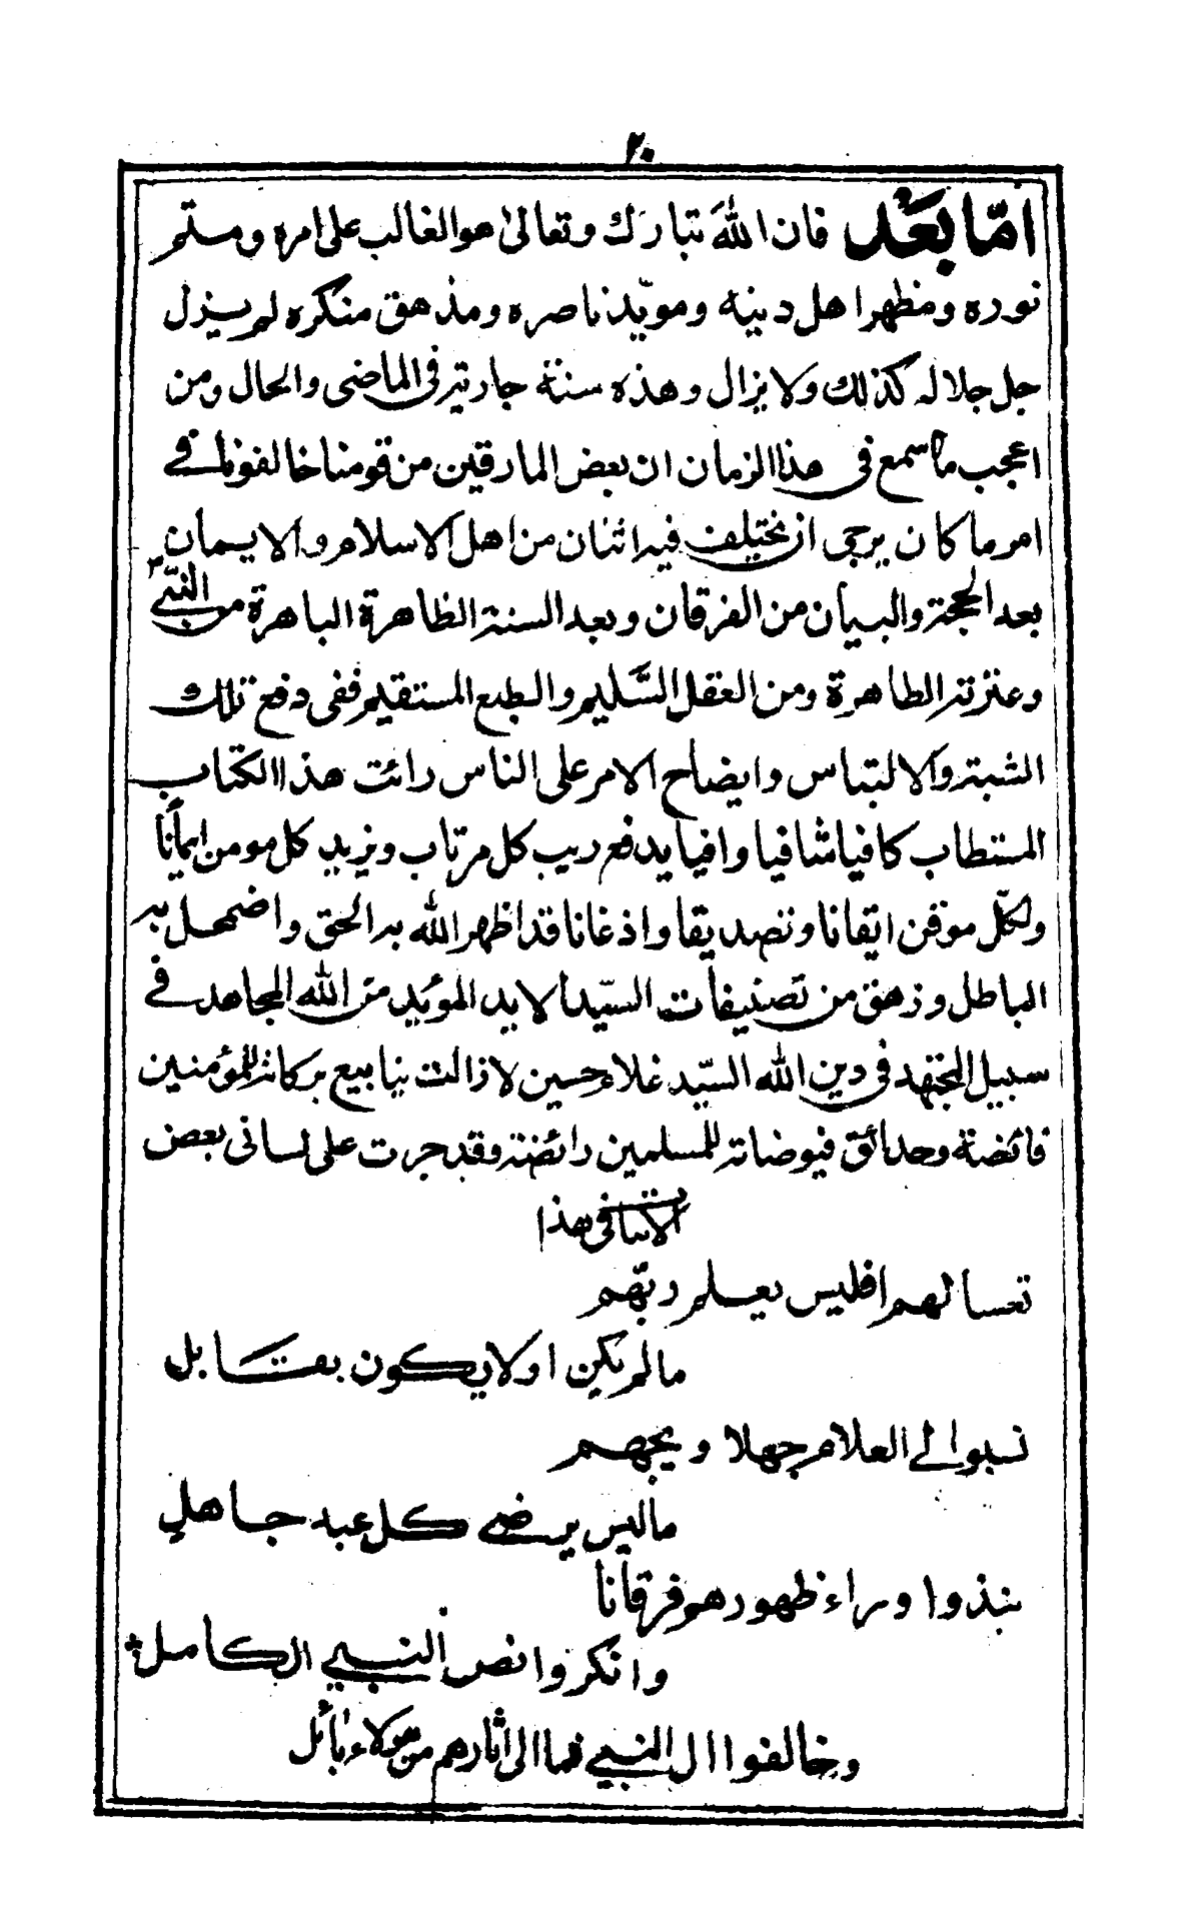 ٢٠
امّا بعَد فان اللهَ تبارك وتعالىٰ هو الغالب على امره ومتم
نوره ومظهر اهل دينه ومويّد ناصره ومذهق منكره لم يزل
جل جلاله كذلك ولا يزال وهذه سنة جارية فى الماضى والحال ومن
اعجب ما سمع فى هذا الزمان ان بعض المارقين من قومنا خالفونا فے
امر ما كان يرجى ان يختلف فيه اثنان من اهل الاسلام والايمان
بعد الحجة والبيان من الفرقان وبعد السنة الظاهرة الباهرة من النبّے
وعترته الطاهرة ومن العقل السَّليم والطبع المستقيم ففى دفع تلك
الشبة والالتباس وايضاح الامر على الناس رائت هذا الكتاب
المستطاب كافيا شافيا وافيا يدفع ريب كل مرتاب ويزيد كل مومن ايمانا
ولكلّ موقن اتقانا وتصديقا واذعانا قد اظهر الله به الحق واضمحل به
الباطل وزهق من تصنيفات السيّد الايد المؤيد من الله المجاهد فے
سبيل المجتهد فى دين الله السيّد غلام حسين لا زالت ينابيع بركاته للمؤمنين
فائضة وحدائق فيوضاته للمسلمين رائضة وقد جرت على لسانى بعض
الابيات فى هذا
تعسا لهم افليس يعلم ربّهم
مالم يكن او لا يكون بقابل
نسبوا الے العلام جهلا ويحهم
ماليس يرضے كل عبد جاهل
نبذوا وراء ظهورهم فرقانا
وانكروا نص النبے الكامل
وخالفوا ال النبے فما الى اثارهم من هولاء بائل